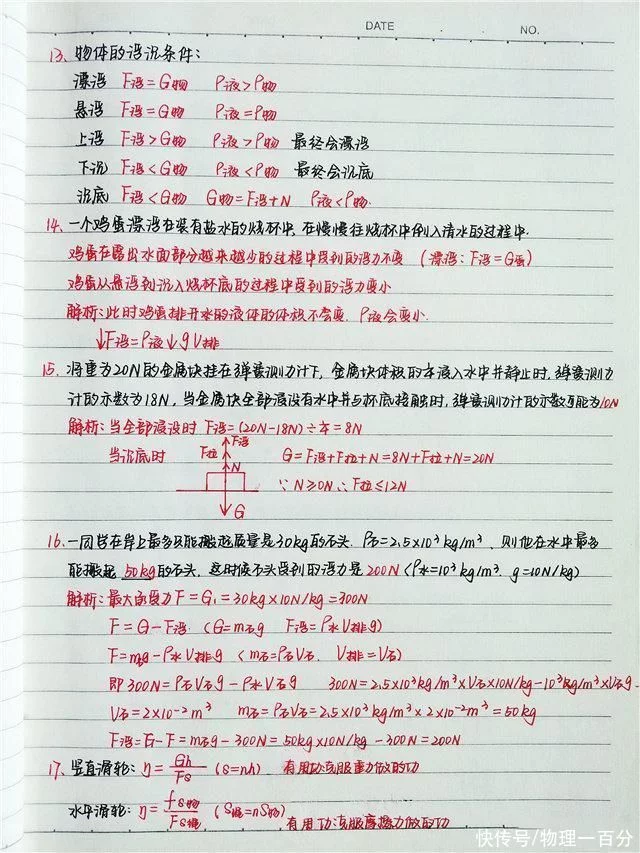 DATE
NO.
13、物体的浮沉条件:
漂浮 F浮=G物 ρ液>ρ物
悬浮 F浮=G物 ρ液=ρ物
上浮 F浮>G物 ρ液>ρ物 最终会漂浮
下沉 F浮<G物 ρ液<ρ物 最终会沉底
沉底 F浮<G物 G物=F浮+N ρ液<ρ物.
14、一个鸡蛋漂浮在装有盐水的烧杯中,在慢慢往烧杯中倒入清水的过程中.
鸡蛋在露出水面部分越来越少的过程中受到的浮力不变 (漂浮:F浮=G蛋)
鸡蛋从悬浮到沉入烧杯底的过程中受到的浮力变小
解析:此时鸡蛋排开水的液体的体积不会变.ρ液会变小.
↓F浮=ρ液↓gV排
15、将重为20N的金属块挂在弹簧测力计下,金属块体积的 浸入水中并静止时,弹簧测力
计的示数为18N,当金属块全部浸没有水中并与杯底接触时,弹簧测力计的示数可能为10N
解析:当全部浸没时 F浮=(20N-18N)÷ =8N
F浮
当沉底时 F拉 G=F浮+F拉+N=8N+F拉+N=20N
N
∵N≥0N∴F拉≤12N
G
16、一同学在岸上最多只能搬起质量是30kg的石头.ρ石=2.5×10³kg/m³、则他在水中最多
能搬起 50kg的石头.这时候石头受到的浮力是200N(ρ水=10³kg/m³.g=10N/kg)
解析:最大的受力F=G₁=30kg×10N/kg=300N
F=G-F浮.(G=m石g F浮=ρ水V排g)
F=m石g-ρ水V排g (m石=ρ石V石. V排=V石)
即300N=ρ石V石g-ρ水V石g 300N=2.5×10³kg/m³×V石×10N/kg-10³kg/m³×V石g.
V石=2×10⁻²m³ m石=ρ石V石=2.5×10³kg/m³×2×10⁻²m³=50kg
F浮=G-F=m石g-300N=50kg×10N/kg-300N=200N
17、竖直滑轮:η=Gh/Fs (s=nh) 有用功克服重力做的功
水平滑轮:η=fs物/Fs绳 (S绳=nS物) 有用功克服摩擦力做的功
快传号/物理一百分